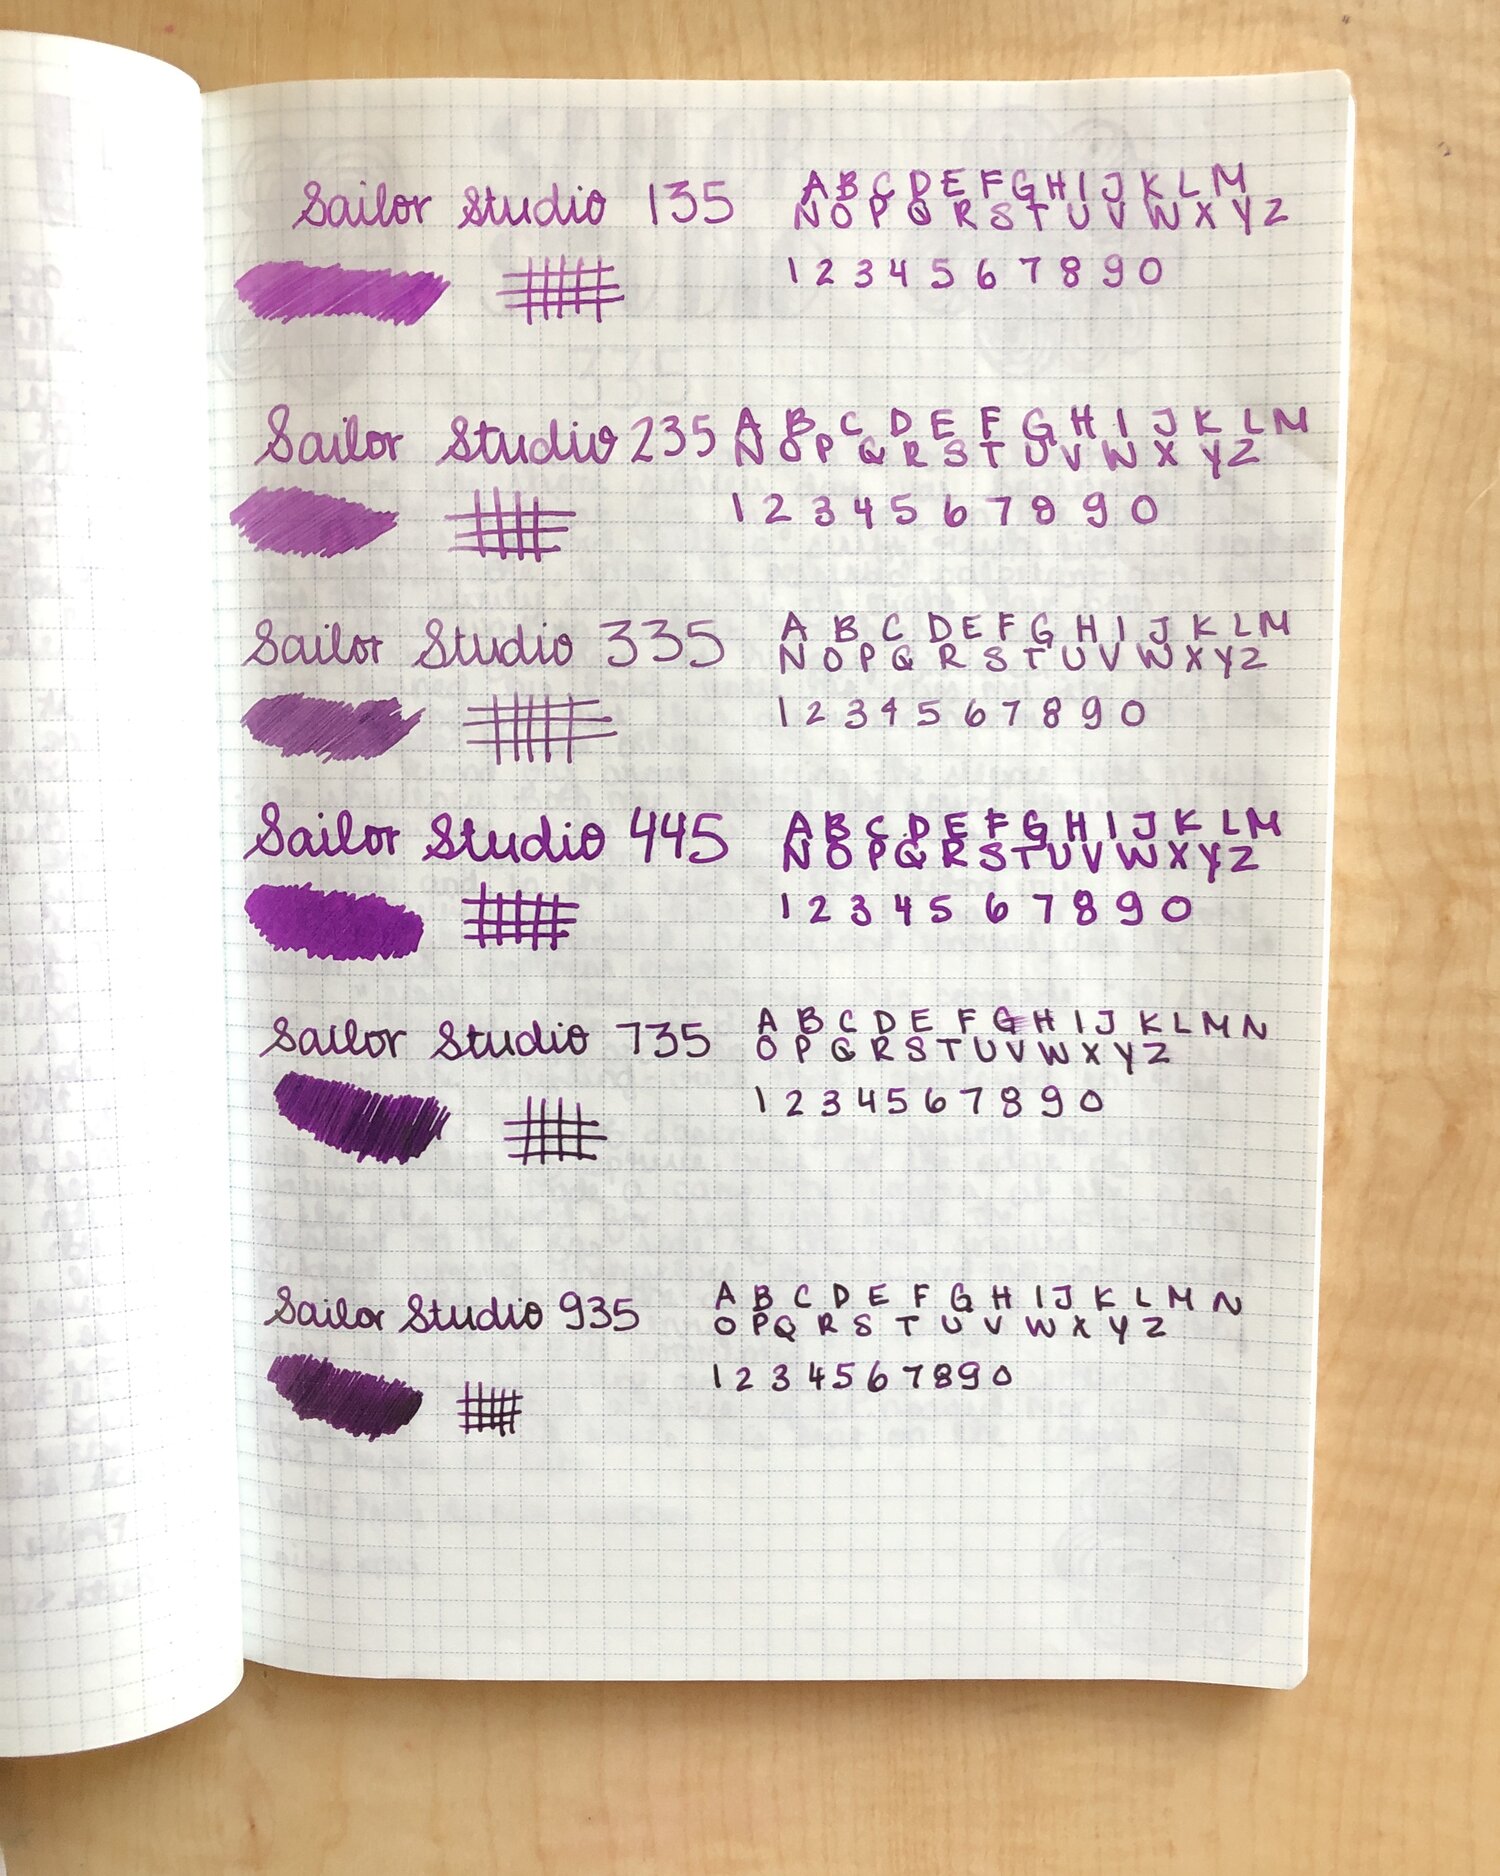 Sailor Studio 135
A B C D E F G H I J K L M
N O P Q R S T U V W X Y Z
1 2 3 4 5 6 7 8 9 0
Sailor Studio 235
A B C D E F G H I J K L M
N O P Q R S T U V W X Y Z
1 2 3 4 5 6 7 8 9 0
Sailor Studio 335
A B C D E F G H I J K L M
N O P Q R S T U V W X Y Z
1 2 3 4 5 6 7 8 9 0
Sailor Studio 445
A B C D E F G H I J K L M
N O P Q R S T U V W X Y Z
1 2 3 4 5 6 7 8 9 0
Sailor Studio 735
A B C D E F G H I J K L M N
O P Q R S T U V W X Y Z
1 2 3 4 5 6 7 8 9 0
Sailor Studio 935
A B C D E F G H I J K L M N
O P Q R S T U V W X Y Z
1 2 3 4 5 6 7 8 9 0